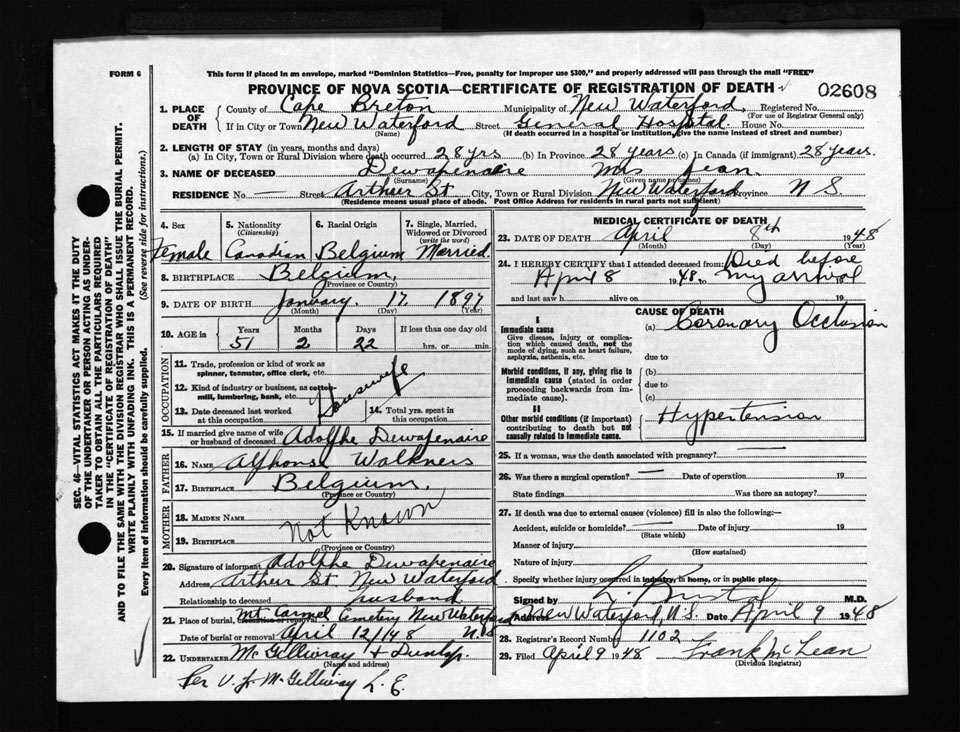 FORM 6
This form if placed in an envelope, marked "Dominion Statistics—Free, penalty for improper use $300," and properly addressed will pass through the mail "FREE"
PROVINCE OF NOVA SCOTIA—CERTIFICATE OF REGISTRATION OF DEATH
02608
1. PLACE OF DEATH County of Cape Breton Municipality of New Waterford, Registered No.
(For use of Registrar General only)
If in City or Town New Waterford Street General Hospital House No.
(Name) (If death occurred in a hospital or institution, give the name instead of street and number)
2. LENGTH OF STAY (in years, months and days)
(a) In City, Town or Rural Division where death occurred 28 yrs (b) In Province 28 years (c) In Canada (if immigrant) 28 years.
3. NAME OF DECEASED Dewapenaire Mrs Jean.
(Surname) (Given name or names)
RESIDENCE No. — Street Arthur St City, Town or Rural Division New Waterford Province N S.
(Residence means usual place of abode. Post Office Address for residents in rural parts not sufficient)
4. Sex Female
5. Nationality (Citizenship) Canadian
6. Racial Origin Belgium
7. Single, Married, Widowed or Divorced (write the word) Married.
8. BIRTHPLACE Belgium,
(Province or Country)
9. DATE OF BIRTH January. 17, 1897
(Month) (Day) (Year)
10. AGE in Years Months Days If less than one day old
51 2 22 hrs. or min.
OCCUPATION
11. Trade, profession or kind of work as spinner, teamster, office clerk, etc.
12. Kind of industry or business, as cotton mill, lumbering, bank, etc.
Housewife
13. Date deceased last worked at this occupation
14. Total yrs. spent in this occupation
15. If married give name of wife or husband of deceased Adolphe Dewapenaire
FATHER
16. NAME Alfhonse Walkners
17. BIRTHPLACE Belgium,
(Province or Country)
MOTHER
18. MAIDEN NAME
Not Known
19. BIRTHPLACE
(Province or Country)
20. Signature of informant Adolphe Dewapenaire
Address Arthur St New Waterford
Relationship to deceased husband
21. Place of burial, cremation or removal Mt Carmel Cemetery New Waterford
Date of burial or removal April 12/148 N.S
22. UNDERTAKER McGillivray & Dunlop.
(Name and address)
Per V. Jr McGillivray L. E.
MEDICAL CERTIFICATE OF DEATH
23. DATE OF DEATH April 8th 1948
(Month) (Day) (Year)
24. I HEREBY CERTIFY that I attended deceased from: Died before
April 8 1948 my arrival
and last saw h alive on 19
CAUSE OF DEATH
I
Immediate cause (a) Coronary Occlusion
Give disease, injury or complication which caused death, not the mode of dying, such as heart failure, asphyxia, asthenia, etc.
due to
Morbid conditions, if any, giving rise to immediate cause (stated in order proceeding backwards from immediate cause).
(b)
due to
(c)
II
Other morbid conditions (if important) contributing to death but not causally related to immediate cause.
Hypertension
25. If a woman, was the death associated with pregnancy? —
26. Was there a surgical operation? — Date of operation 19
State findings Was there an autopsy?
27. If death was due to external causes (violence) fill in also the following:—
Accident, suicide or homicide? — Date of injury 19
(State which)
Manner of injury
(How sustained)
Nature of injury
Specify whether injury occurred in industry, in home, or in public place
Signed by M.D.
Address New Waterford, N.S. Date April 9 1948
28. Registrar's Record Number 1102
29. Filed April 9 1948 Frank McLean
(Division Registrar)
SEC. 46—VITAL STATISTICS ACT MAKES IT THE DUTY
OF THE UNDERTAKER OR PERSON ACTING AS UNDERTAKER TO OBTAIN ALL THE PARTICULARS REQUIRED
IN THE "CERTIFICATE OF REGISTRATION OF DEATH"
AND TO FILE THE SAME WITH THE DIVISION REGISTRAR WHO SHALL ISSUE THE BURIAL PERMIT.
WRITE PLAINLY WITH UNFADING INK. THIS IS A PERMANENT RECORD.
Every item of information should be carefully supplied. (See reverse side for instructions.)